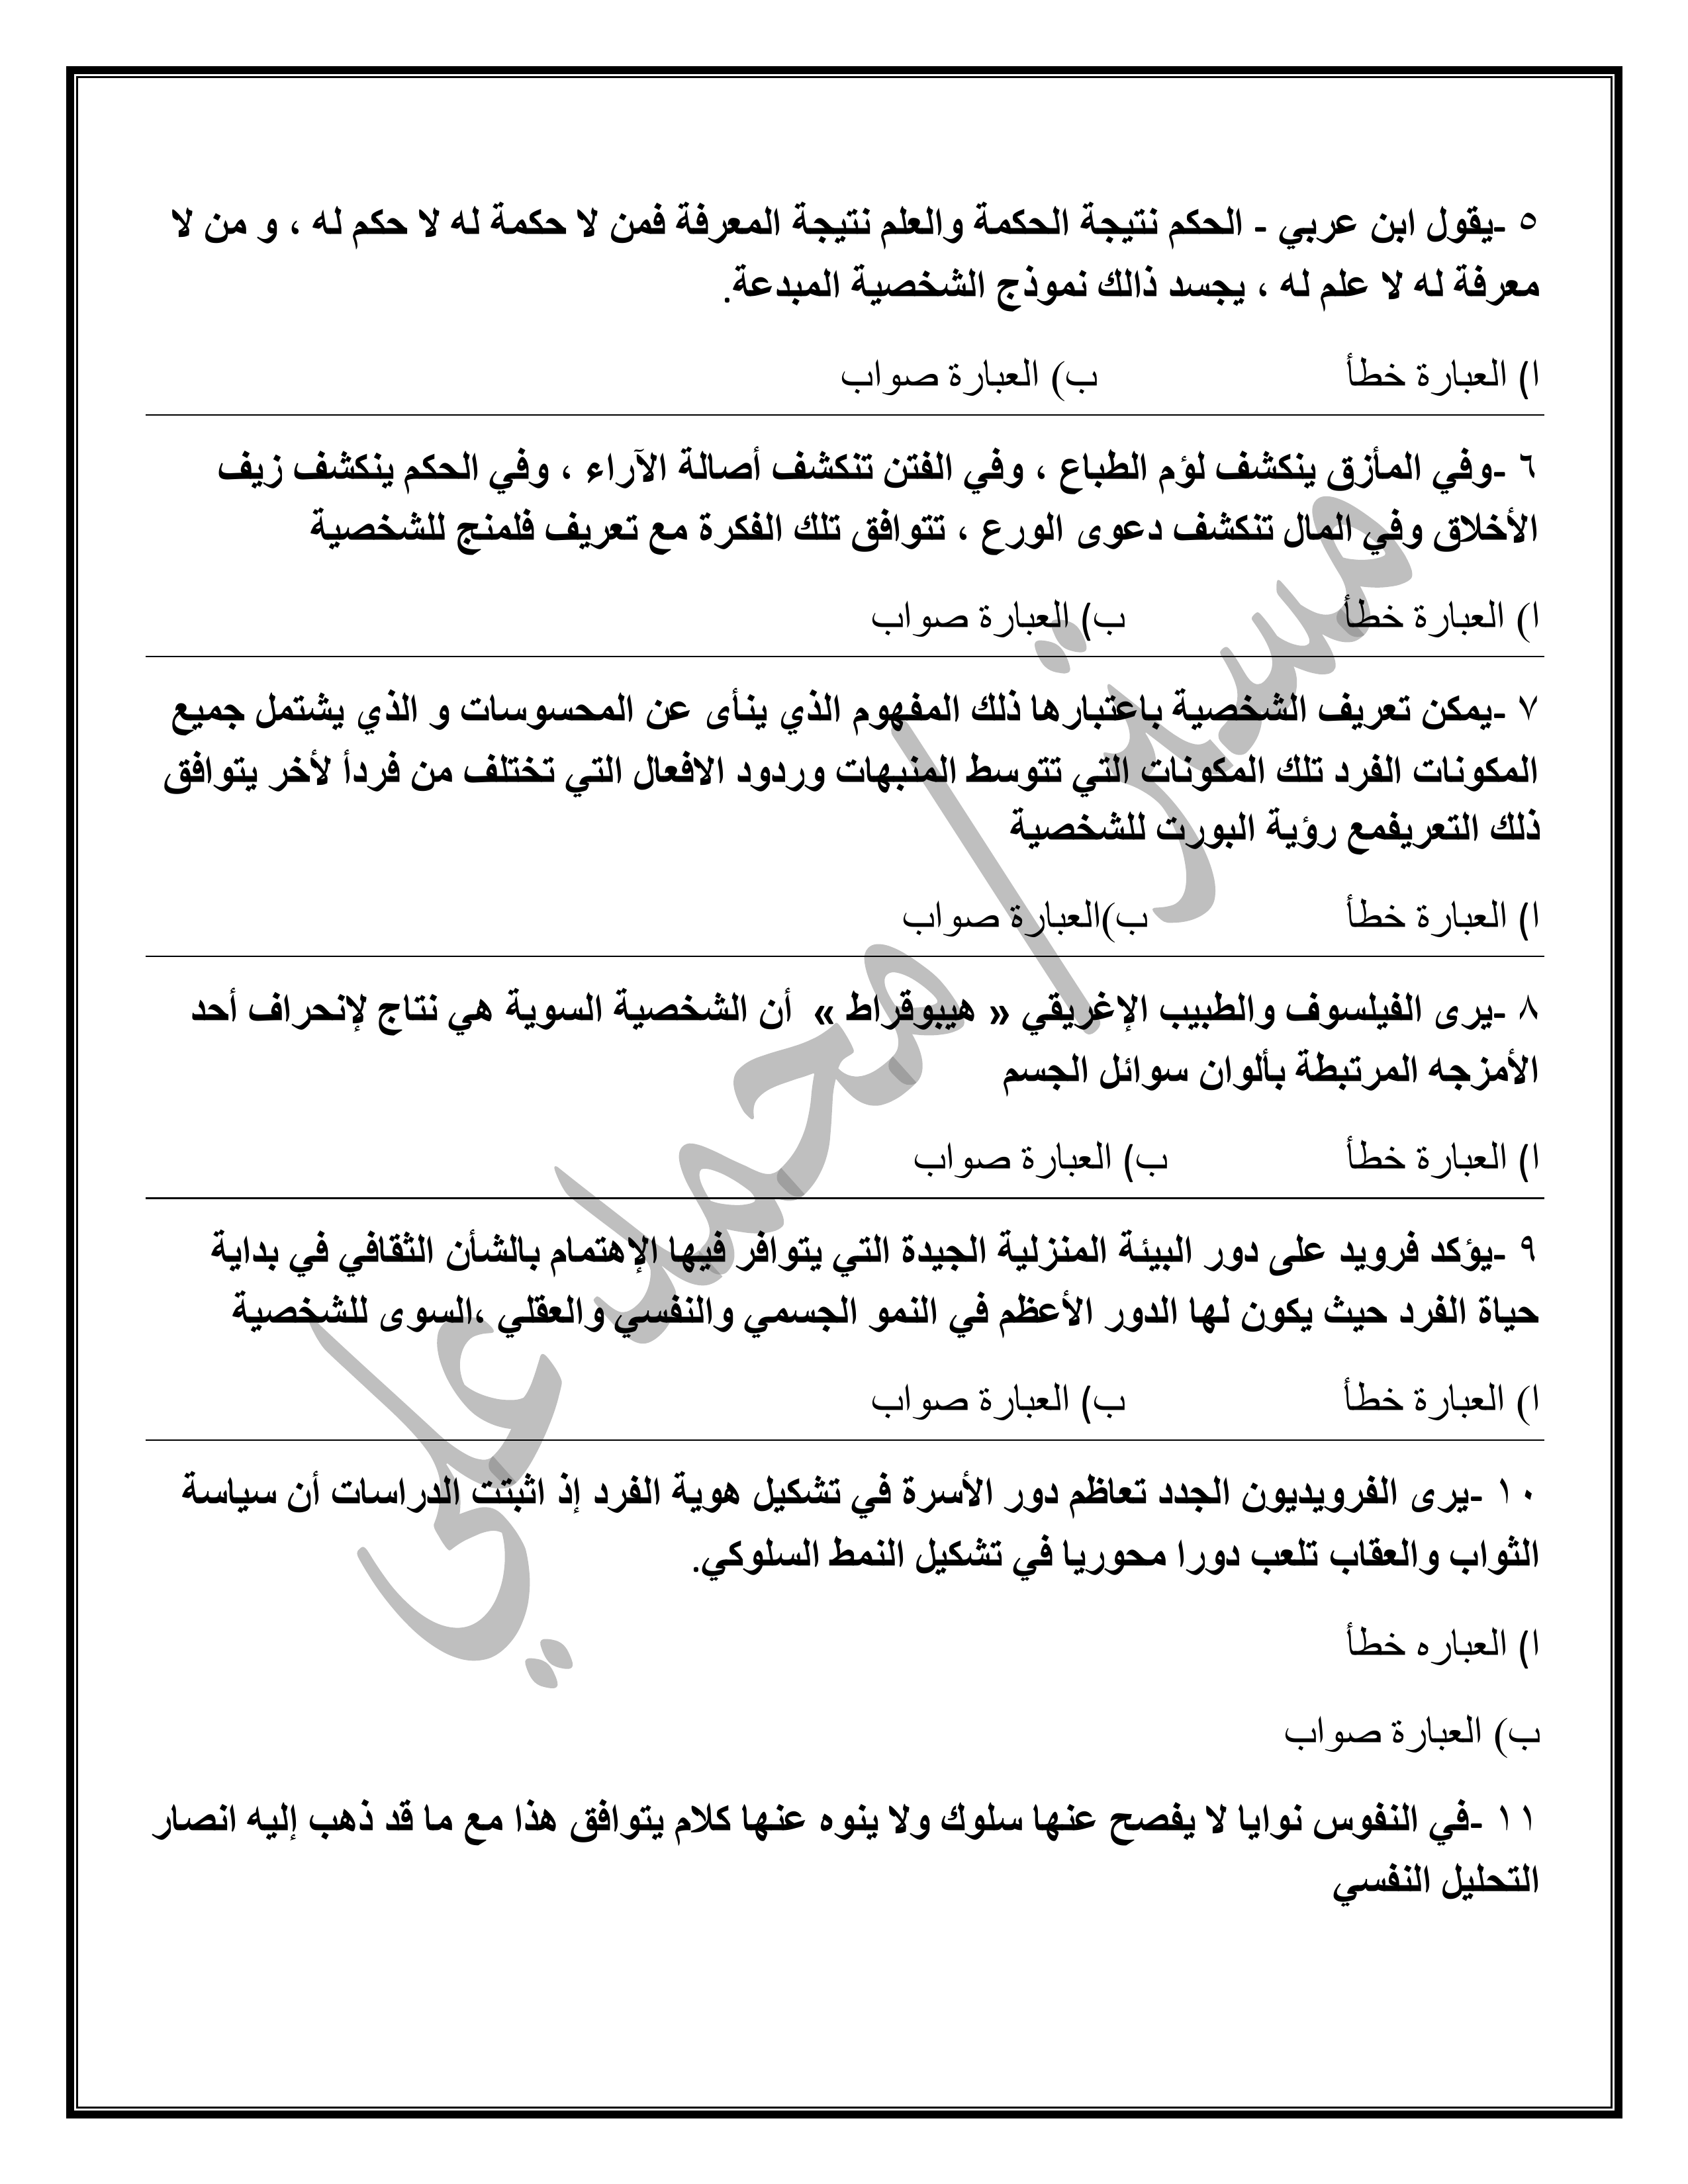 ٥ -يقول ابن عربي - الحكم نتيجة الحكمة والعلم نتيجة المعرفة فمن لا حكمة له لا حكم له ، و من لا
معرفة له لا علم له ، يجسد ذالك نموذج الشخصية المبدعة.
ا) العبارة خطأ ب) العبارة صواب
٦ -وفي المأزق ينكشف لؤم الطباع ، وفي الفتن تنكشف أصالة الآراء ، وفي الحكم ينكشف زيف
الأخلاق وفي المال تنكشف دعوى الورع ، تتوافق تلك الفكرة مع تعريف فلمنج للشخصية
ا) العبارة خطأ ب) العبارة صواب
٧ -يمكن تعريف الشخصية باعتبارها ذلك المفهوم الذي ينأى عن المحسوسات و الذي يشتمل جميع
المكونات الفرد تلك المكونات التي تتوسط المنبهات وردود الافعال التي تختلف من فردأ لأخر يتوافق
ذلك التعريفمع رؤية البورت للشخصية
ا) العبارة خطأ ب)العبارة صواب
٨ -يرى الفيلسوف والطبيب الإغريقي « هيبوقراط » أن الشخصية السوية هي نتاج لإنحراف أحد
الأمزجه المرتبطة بألوان سوائل الجسم
ا) العبارة خطأ ب) العبارة صواب
٩ -يؤكد فرويد على دور البيئة المنزلية الجيدة التي يتوافر فيها الإهتمام بالشأن الثقافي في بداية
حياة الفرد حيث يكون لها الدور الأعظم في النمو الجسمي والنفسي والعقلي ،السوى للشخصية
ا) العبارة خطأ ب) العبارة صواب
١٠ -يرى الفرويديون الجدد تعاظم دور الأسرة في تشكيل هوية الفرد إذ اثبتت الدراسات أن سياسة
الثواب والعقاب تلعب دورا محوريا في تشكيل النمط السلوكي.
ا) العباره خطأ
ب) العبارة صواب
١١ -في النفوس نوايا لا يفصح عنها سلوك ولا ينوه عنها كلام يتوافق هذا مع ما قد ذهب إليه انصار
التحليل النفسي
مستر/محمد علي